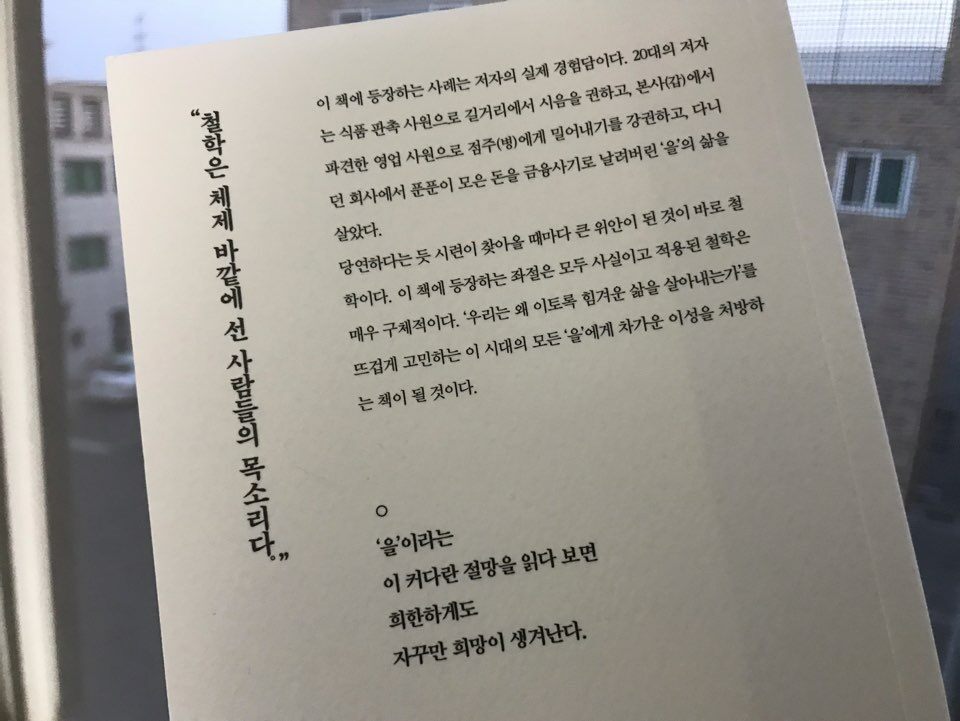 “철학은 체제 바깥에 선 사람들의 목소리다.”
이 책에 등장하는 사례는 저자의 실제 경험담이다. 20대의 저자
는 식품 판촉 사원으로 길거리에서 시음을 권하고, 본사(갑)에서
파견한 영업 사원으로 점주(병)에게 밀어내기를 강권하고, 다니
던 회사에서 푼푼이 모은 돈을 금융사기로 날려버린 ‘을’의 삶을
살았다.
당연하다는 듯 시련이 찾아올 때마다 큰 위안이 된 것이 바로 철
학이다. 이 책에 등장하는 좌절은 모두 사실이고 적용된 철학은
매우 구체적이다. ‘우리는 왜 이토록 힘겨운 삶을 살아내는가’를
뜨겁게 고민하는 이 시대의 모든 ‘을’에게 차가운 이성을 처방하
는 책이 될 것이다.
‘을’이라는
이 커다란 절망을 읽다 보면
희한하게도
자꾸만 희망이 생겨난다.